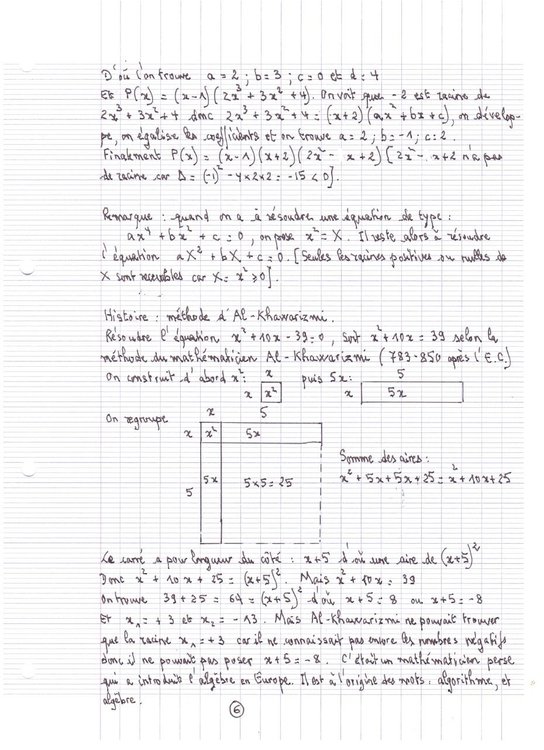 D'où l'on trouve a = 2 ; b = 3 ; c = 0 et d = 4
Et P(x) = (x-1)(2x³ + 3x² + 4). On voit que -2 est racine de
2x³ + 3x² + 4 donc 2x³ + 3x² + 4 = (x+2)(ax² + bx + c), on dévelop-
pe, on égalise les coefficients et on trouve a = 2 ; b = -1 ; c = 2.
Finalement P(x) = (x-1)(x+2)(2x² - x + 2) [2x² - x + 2 n'a pas
de racine car Δ = (-1)² - 4×2×2 = -15 < 0].
Remarque : quand on a à résoudre une équation de type :
ax⁴ + bx² + c = 0, on pose x² = X. Il reste alors à résoudre
l'équation aX² + bX + c = 0. [Seules les racines positives ou nulles de
X sont recevables car X = x² ⩾ 0].
Histoire : méthode d'Al-Khawarizmi.
Résoudre l'équation x² + 10x - 39 = 0, soit x² + 10x = 39 selon la
méthode du mathématicien Al-Khawarizmi (783-850 après l'E.C)
On construit d'abord x² : x puis 5x : 5
x x² x 5x
On regroupe x 5
x x² 5x
5 5x 5×5 = 25
Somme des aires :
x² + 5x + 5x + 25 = x² + 10x + 25
Le carré a pour longueur du côté : x+5 d'où une aire de (x+5)²
Donc x² + 10x + 25 = (x+5)². Mais x² + 10x = 39
On trouve 39 + 25 = 64 = (x+5)² d'où x+5 = 8 ou x+5 = -8
Et x₁ = +3 et x₂ = -13. Mais Al-Khawarizmi ne pouvait trouver
que la racine x₁ = +3 car il ne connaissait pas encore les nombres négatifs
donc il ne pouvait pas poser x+5 = -8. C'était un mathématicien perse
qui a introduit l'algèbre en Europe. Il est à l'origine des mots : algorithme, et
algèbre.
6